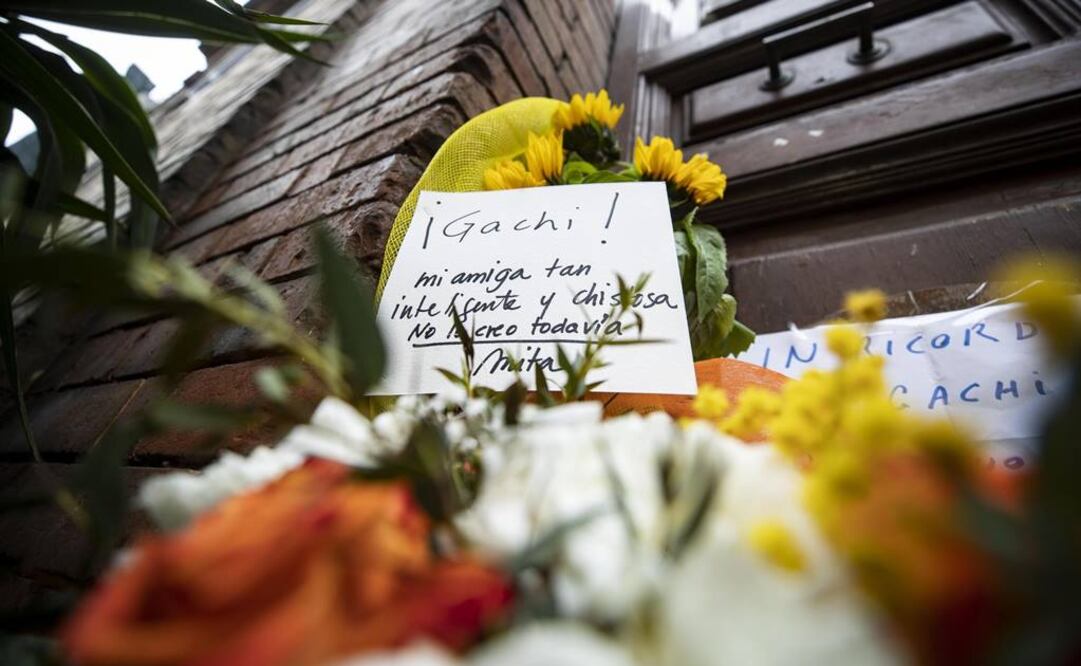 ¡Gachi!
mi amiga tan
inteligente y chistosa
No creo todavía
Mita
IN RICORD
GACHI